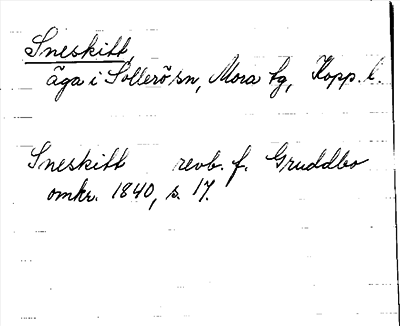 Sneskitt,
äga i Sollerö sn, Mora tg, Kopp. l.
Sneskitt revb. f. Gruddbo
omkr. 1840, s. 17.